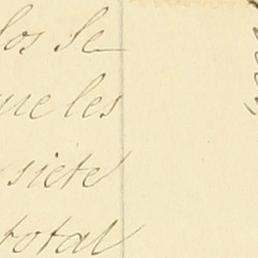 los se
que les
siete
total